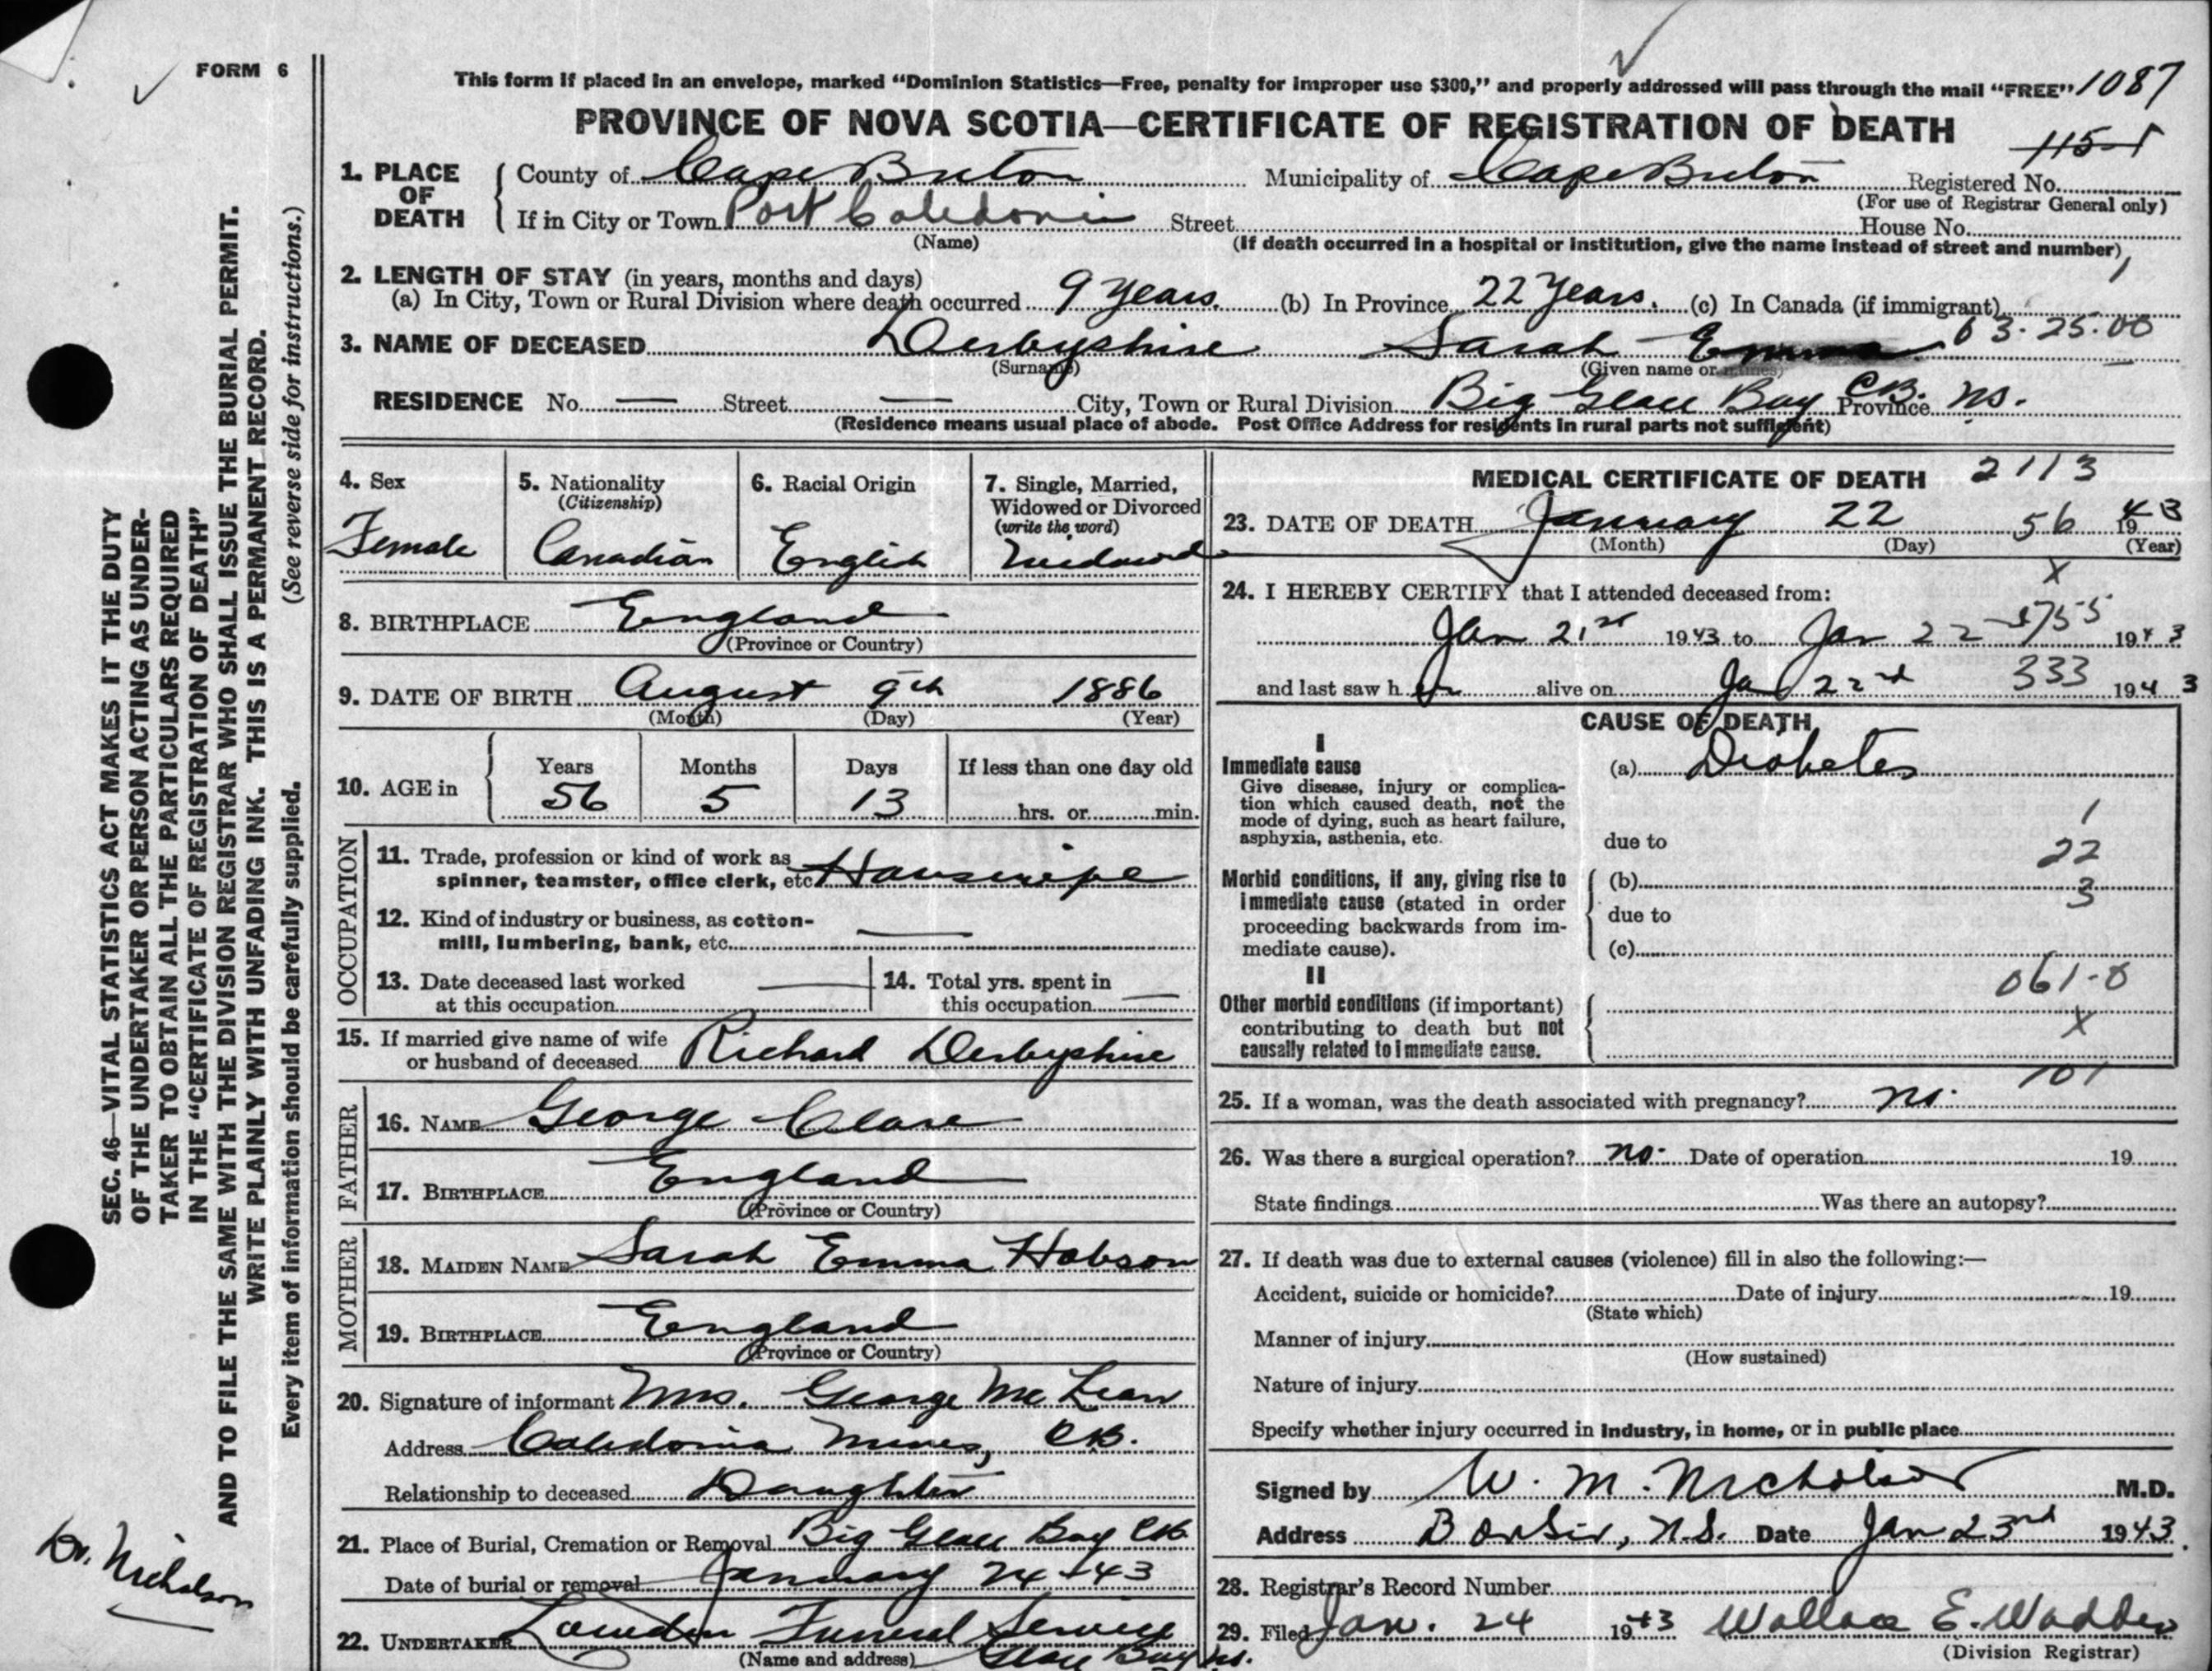 FORM 6
This form if placed in an envelope, marked "Dominion Statistics—Free, penalty for improper use $300," and properly addressed will pass through the mail "FREE" 1087
PROVINCE OF NOVA SCOTIA—CERTIFICATE OF REGISTRATION OF DEATH
1. PLACE OF DEATH
County of Cape Breton Municipality of Cape Breton Registered No.
(For use of Registrar General only)
If in City or Town Port Caledonia Street House No.
(Name) (If death occurred in a hospital or institution, give the name instead of street and number)
2. LENGTH OF STAY (in years, months and days)
(a) In City, Town or Rural Division where death occurred 9 Years. (b) In Province 22 Years. (c) In Canada (if immigrant)
63-25-00
3. NAME OF DECEASED Derbyshire Sarah Emma
(Surname) (Given name or names)
RESIDENCE No. — Street — City, Town or Rural Division Big Glace Bay C.B. Province N.S.
(Residence means usual place of abode. Post Office Address for residents in rural parts not sufficient)
4. Sex
Female
5. Nationality
(Citizenship)
Canadian
6. Racial Origin
English
7. Single, Married,
Widowed or Divorced
(write the word)
Widowed
8. BIRTHPLACE England
(Province or Country)
9. DATE OF BIRTH August 9th 1886
(Month) (Day) (Year)
10. AGE in
Years Months Days If less than one day old
56 5 13 hrs. or min.
OCCUPATION
11. Trade, profession or kind of work as
spinner, teamster, office clerk, etc. Housewife
12. Kind of industry or business, as cotton-
mill, lumbering, bank, etc. —
13. Date deceased last worked
at this occupation —
14. Total yrs. spent in
this occupation —
15. If married give name of wife
or husband of deceased Richard Derbyshire
FATHER
16. NAME George Clare
17. BIRTHPLACE England
(Province or Country)
MOTHER
18. MAIDEN NAME Sarah Emma Hobson
19. BIRTHPLACE England
(Province or Country)
20. Signature of informant Mrs. George McLean
Address Caledonia Mines, C.B.
Relationship to deceased Daughter
21. Place of Burial, Cremation or Removal Big Glace Bay C.B.
Date of burial or removal January 24-43
22. UNDERTAKER Funeral Service
(Name and address) Glace Bay N.S.
MEDICAL CERTIFICATE OF DEATH 2113
23. DATE OF DEATH January 22 56 1943
(Month) (Day) (Year)
X
24. I HEREBY CERTIFY that I attended deceased from:
Jan 21st 1943 to Jan 22 1943
and last saw her alive on Jan 22nd 333 1943
CAUSE OF DEATH
I
Immediate cause
Give disease, injury or complica-
tion which caused death, not the
mode of dying, such as heart failure,
asphyxia, asthenia, etc.
(a) Diabetes
1
due to
22
Morbid conditions, if any, giving rise to
immediate cause (stated in order
proceeding backwards from im-
mediate cause).
(b)
3
due to
(c)
II
061-0
Other morbid conditions (if important)
contributing to death but not
causally related to immediate cause.
X
101
25. If a woman, was the death associated with pregnancy? no.
26. Was there a surgical operation? no. Date of operation 19
State findings Was there an autopsy?
27. If death was due to external causes (violence) fill in also the following:—
Accident, suicide or homicide? Date of injury 19
(State which)
Manner of injury
(How sustained)
Nature of injury
Specify whether injury occurred in industry, in home, or in public place
Signed by W. M. Nicholson M.D.
Address N.S. Date Jan 23rd 1943
28. Registrar's Record Number
29. Filed Jan. 24 1943 Wallace E. Wadden
(Division Registrar)
SEC. 46—VITAL STATISTICS ACT MAKES IT THE DUTY
OF THE UNDERTAKER OR PERSON ACTING AS UNDER-
TAKER TO OBTAIN ALL THE PARTICULARS REQUIRED
IN THE "CERTIFICATE OF REGISTRATION OF DEATH"
AND TO FILE THE SAME WITH THE DIVISION REGISTRAR WHO SHALL ISSUE THE BURIAL PERMIT.
WRITE PLAINLY WITH UNFADING INK. THIS IS A PERMANENT RECORD.
Every item of information should be carefully supplied. (See reverse side for instructions.)
Dr. Nicholson